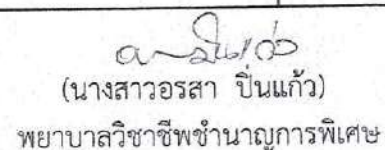 (นางสาวอรสา ปิ่นแก้ว)
พยาบาลวิชาชีพชำนาญการพิเศษ